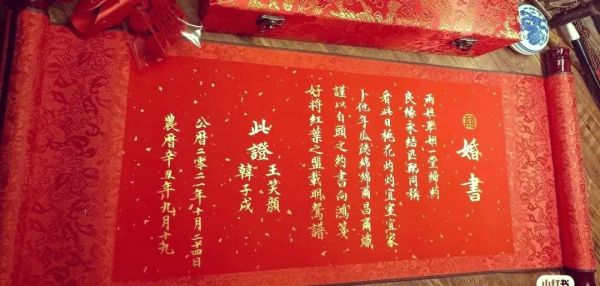 婚書
兩姓聯姻一堂締約
良緣永結匹配同稱
看此日桃花灼灼宜室宜家
卜他年瓜瓞綿綿爾昌爾熾
謹以白頭之約書向鴻箋
好將紅葉之盟載明鴛譜
此證
王笑顏
韓子成
公曆二零二一年十月二十四日
農曆辛丑年九月十九
小红书